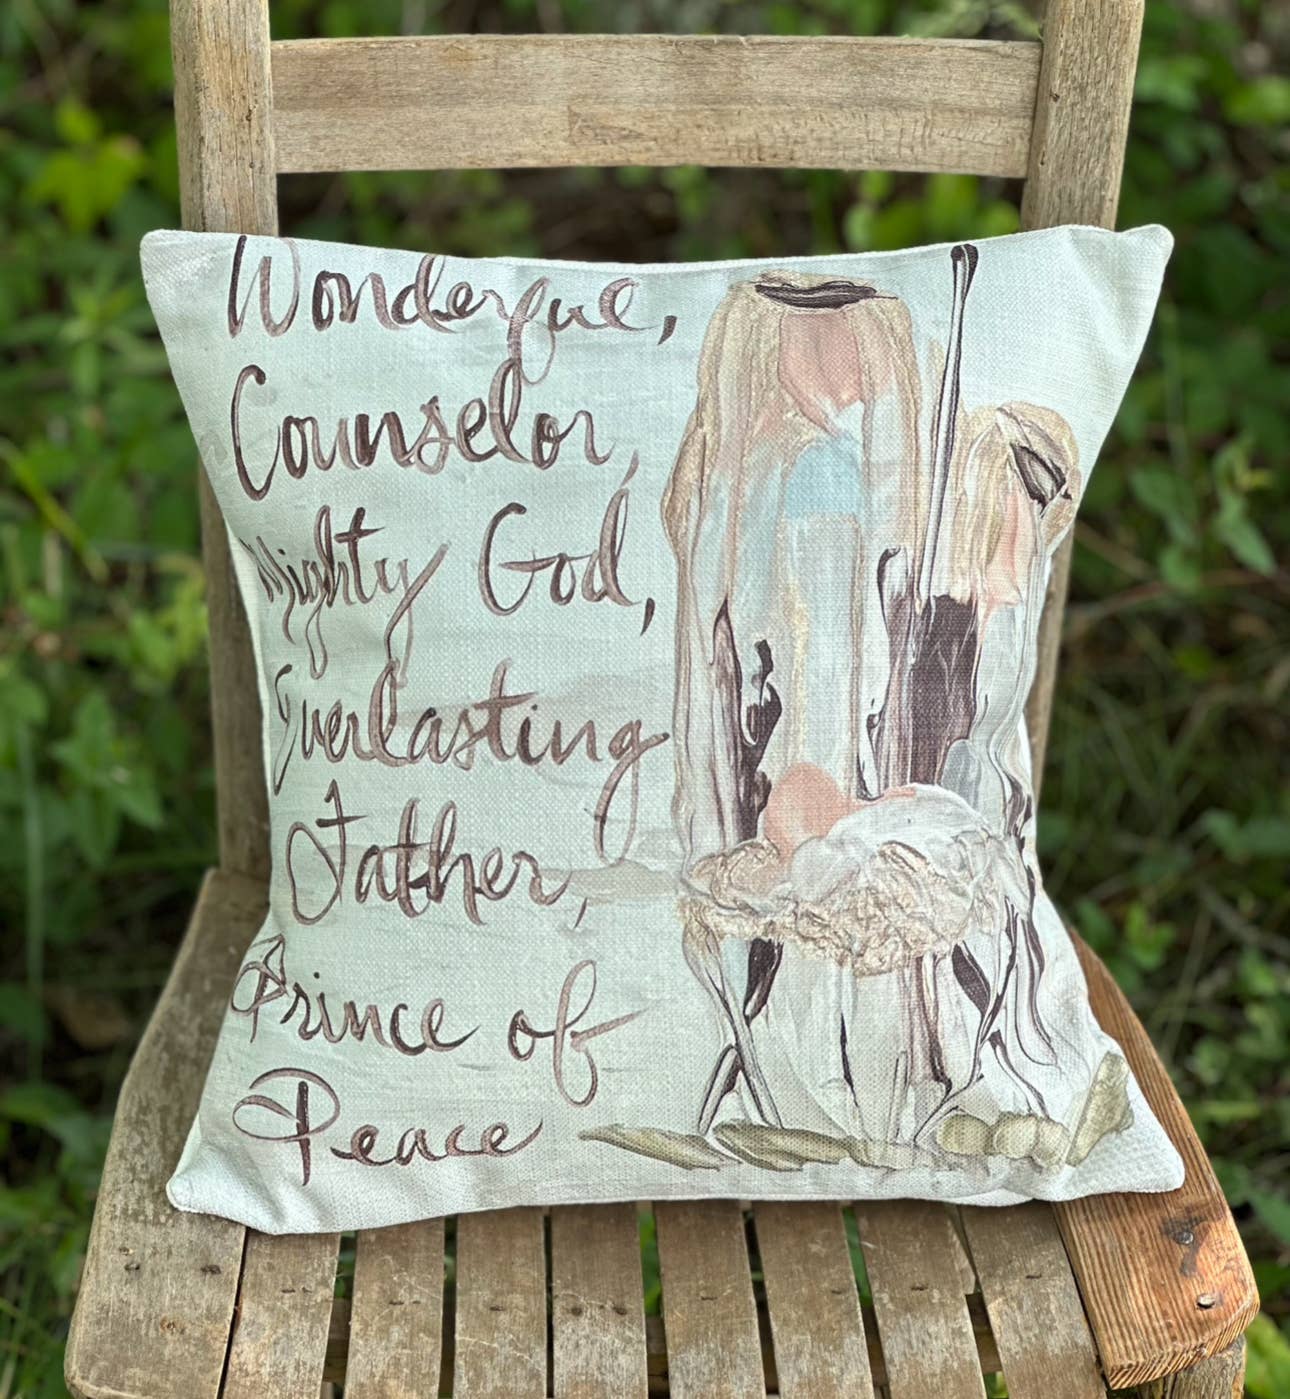 Wonderful,
Counselor,
Mighty God,
Everlasting
Father,
Prince of
Peace